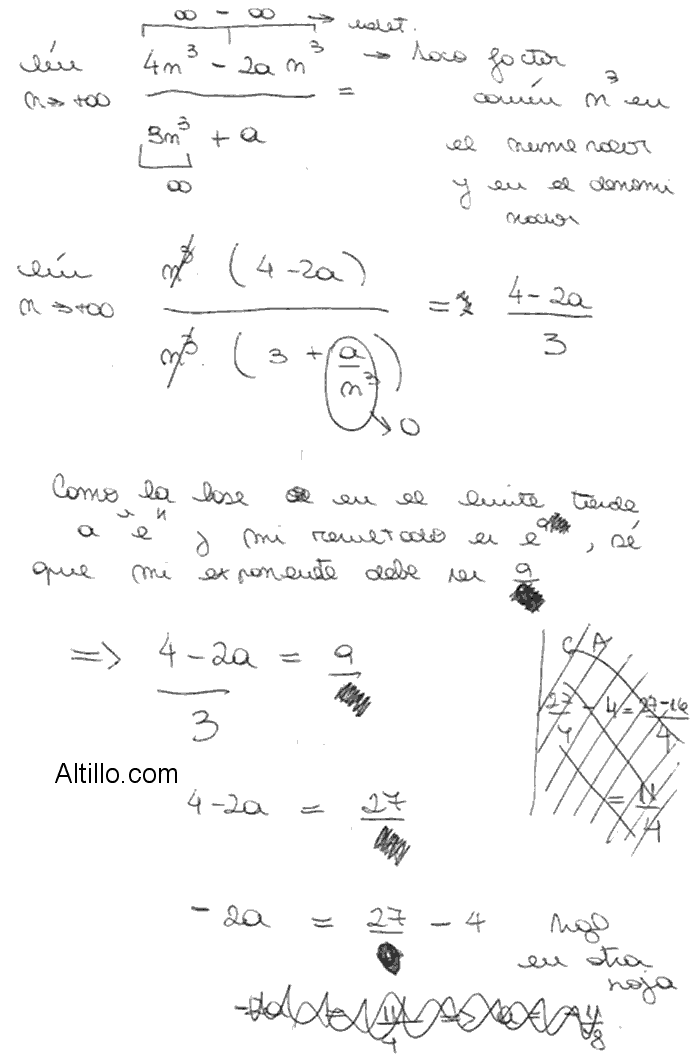 ∞ - ∞ → indet.
lím n→+∞ (4n³ - 2a n³) / (3n³ + a) = → saco factor
∞
común n³ en
el numerador
y en el denomi
nador
lím n→+∞ n³ (4 - 2a) / n³ (3 + a/n³) = (4 - 2a)/3
→ 0
Como la base en el límite tiende
a "e" y mi resultado es e⁹, sé
que mi exponente debe ser 9
=> (4 - 2a)/3 = 9
C A
27/4 - 4 = (27-16)/4
= 11/4
Altillo.com
4 - 2a = 27
-2a = 27 - 4
sigo
en otra
hoja